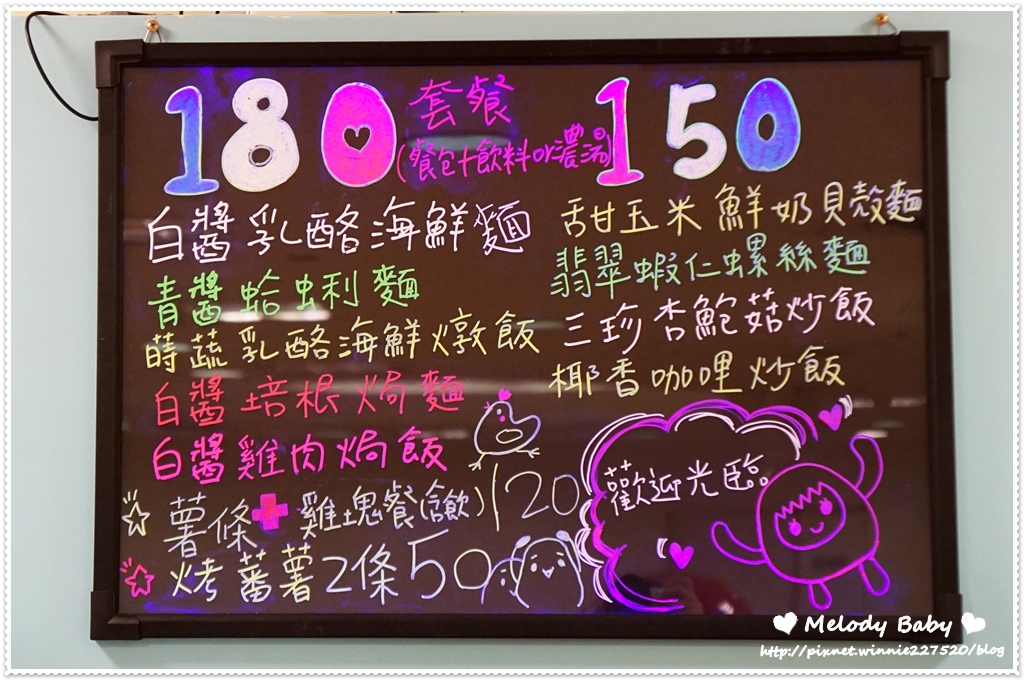 180 套餐 150
(餐包+飲料or濃湯)
白醬乳酪海鮮麵
青醬蛤蜊麵
蒔蔬乳酪海鮮燉飯
白醬培根焗麵
白醬雞肉焗飯
薯條+雞塊餐(含飲)120
烤蕃薯2條50
甜玉米鮮奶貝殼麵
翡翠蝦仁螺絲麵
三珍杏鮑菇炒飯
椰香咖哩炒飯
歡迎光臨。
Melody Baby
http://pixnet.winnie227520/blog